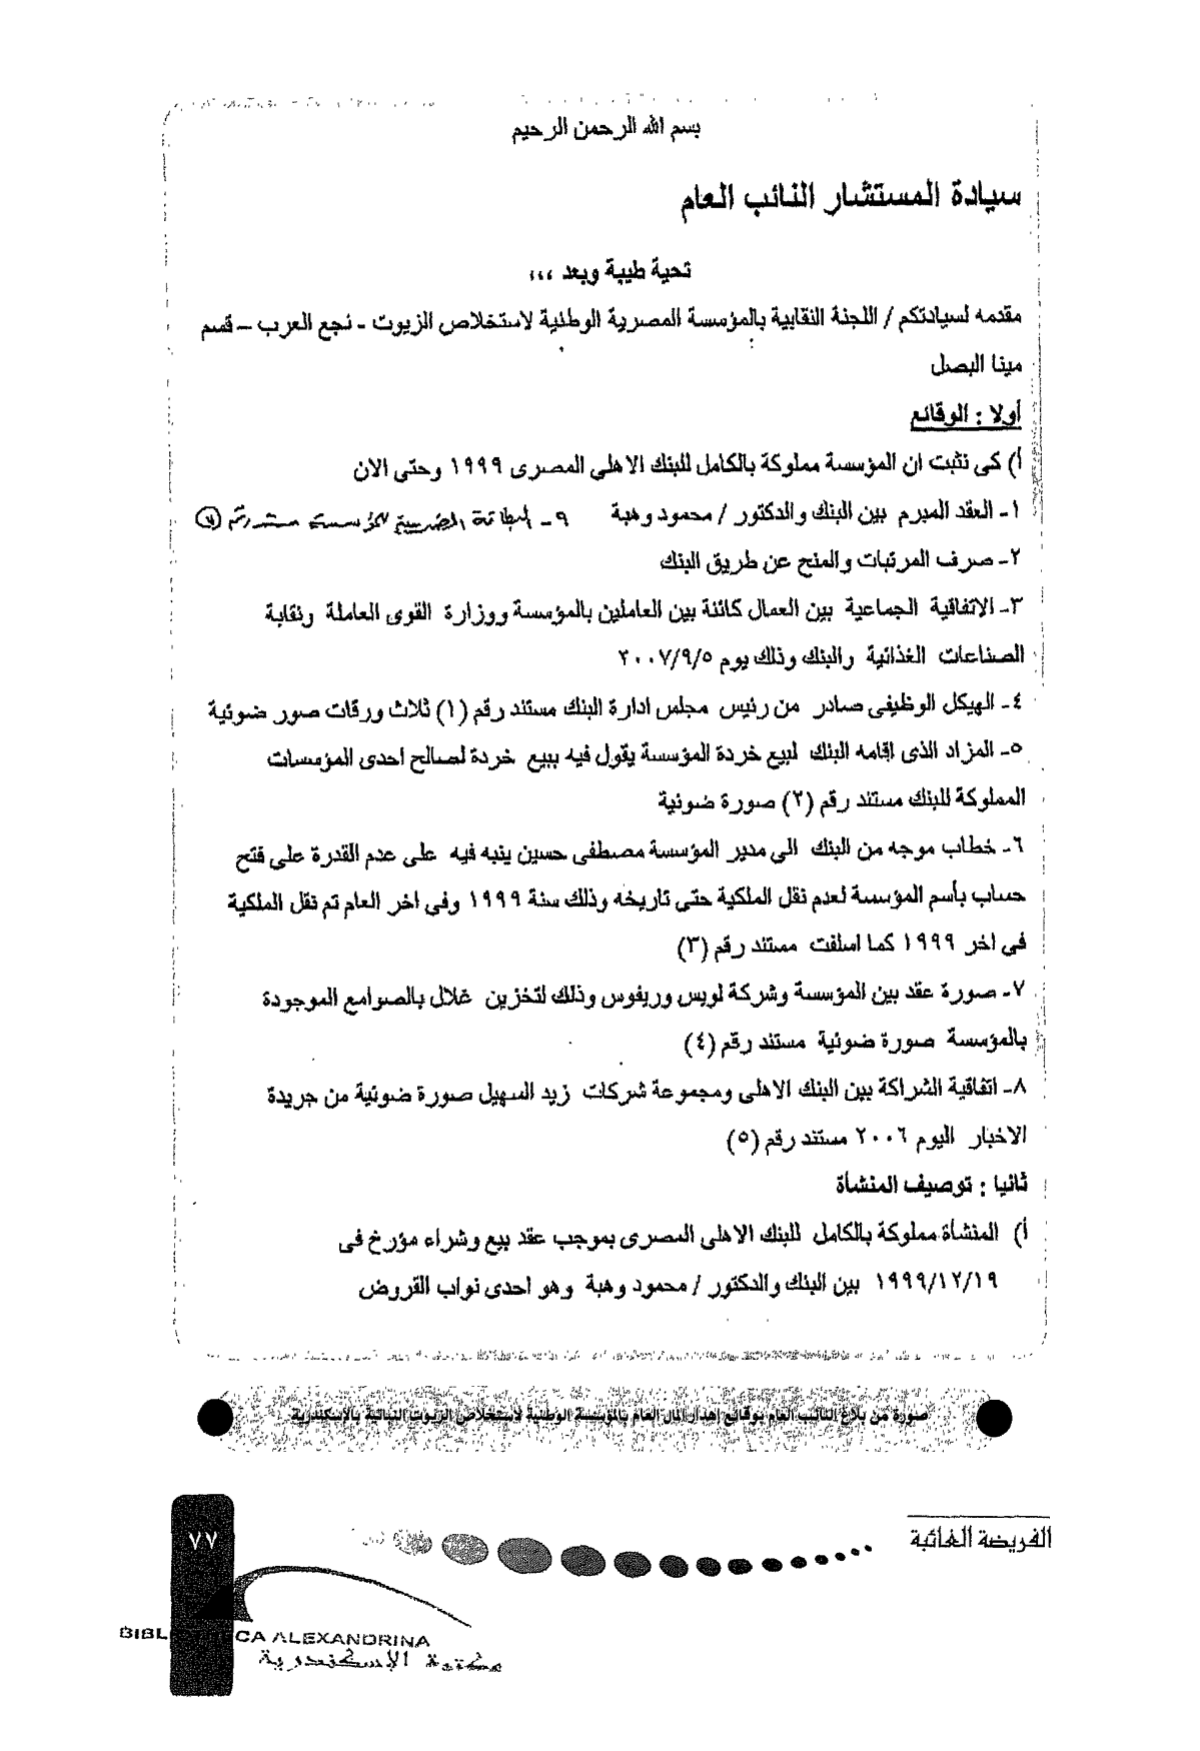 بسم الله الرحمن الرحيم
سيادة المستشار النائب العام
تحية طيبة وبعد ،،،
مقدمه لسيادتكم / اللجنة النقابية بالمؤسسة المصرية الوطنية لاستخلاص الزيوت - نجع العرب – قسم
مينا البصل
أولا : الوقائع
أ) كى نثبت ان المؤسسة مملوكة بالكامل للبنك الاهلى المصرى ١٩٩٩ وحتى الان
١- العقد المبرم بين البنك والدكتور / محمود وهبة ٩- البطاقة الضريبية للمؤسسة مستند رقم (٧)
٢- صرف المرتبات والمنح عن طريق البنك
٣- الإتفاقية الجماعية بين العمال كائنة بين العاملين بالمؤسسة ووزارة القوى العاملة ونقابة
الصناعات الغذائية والبنك وذلك يوم ٢٠٠٧/٩/٥
٤- الهيكل الوظيفى صادر من رئيس مجلس ادارة البنك مستند رقم (١) ثلاث ورقات صور ضوئية
٥- المزاد الذى اقامه البنك لبيع خردة المؤسسة يقول فيه ببيع خردة لصالح احدى المؤسسات
المملوكة للبنك مستند رقم (٢) صورة ضوئية
٦- خطاب موجه من البنك الى مدير المؤسسة مصطفى حسين ينبه فيه على عدم القدرة على فتح
حساب بأسم المؤسسة لعدم نقل الملكية حتى تاريخه وذلك سنة ١٩٩٩ وفى اخر العام تم نقل الملكية
فى اخر ١٩٩٩ كما اسلفت مستند رقم (٣)
٧- صورة عقد بين المؤسسة وشركة لويس وريفوس وذلك لتخزين غلال بالصوامع الموجودة
بالمؤسسة صورة ضوئية مستند رقم (٤)
٨- اتفاقية الشراكة بين البنك الاهلى ومجموعة شركات زيد السهيل صورة ضوئية من جريدة
الاخبار اليوم ٢٠٠٦ مستند رقم (٥)
ثانيا : توصيف المنشأة
أ) المنشأة مملوكة بالكامل للبنك الاهلى المصرى بموجب عقد بيع وشراء مؤرخ فى
١٩٩٩/١٢/١٩ بين البنك والدكتور / محمود وهبة وهو احدى نواب القروض
صورة من بلاغ النائب العام بوقائع إهدار المال العام بالمؤسسة الوطنية لاستخلاص الزيوت النباتية بالإسكندرية
الفريضة الغائبة
٧٧
BIBLIOTHECA ALEXANDRINA
مكتبة الإسكندرية